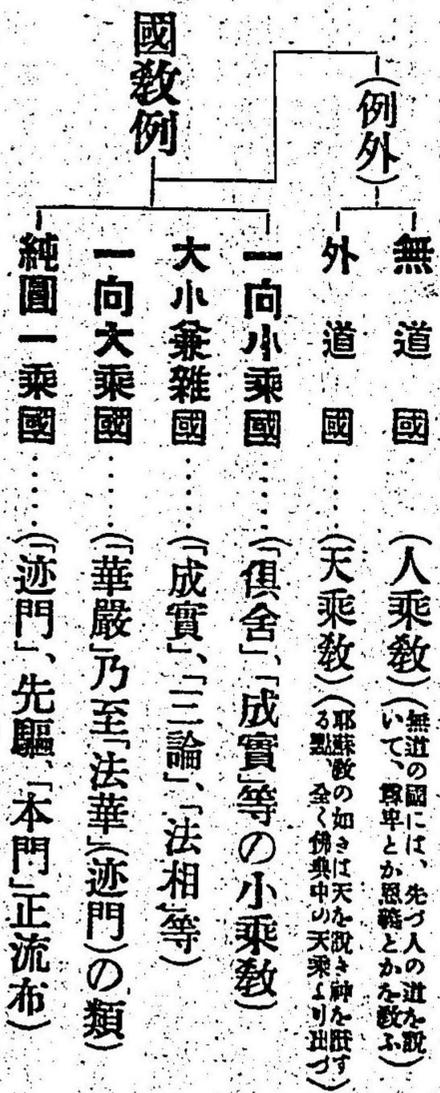 （例外）
無道國……（人乘敎）（無道の國には、先づ人の道を說
いて、尊卑とか恩義とかを敎ふ
外道國……（天乘敎）（耶蘇敎の如きは天を說き神を
る點、全く佛典中の天乘より出づ）
國敎例
一向小乘國……（「俱舍」、「成實」等の小乘敎）
大小兼雜國……（「成實」、「三論」、「法相」等）
一向大乘國……（「華嚴」乃至「法華」（迹門）の類）
純圓一乘國……（「迹門」、先驅、「本門」正流布）